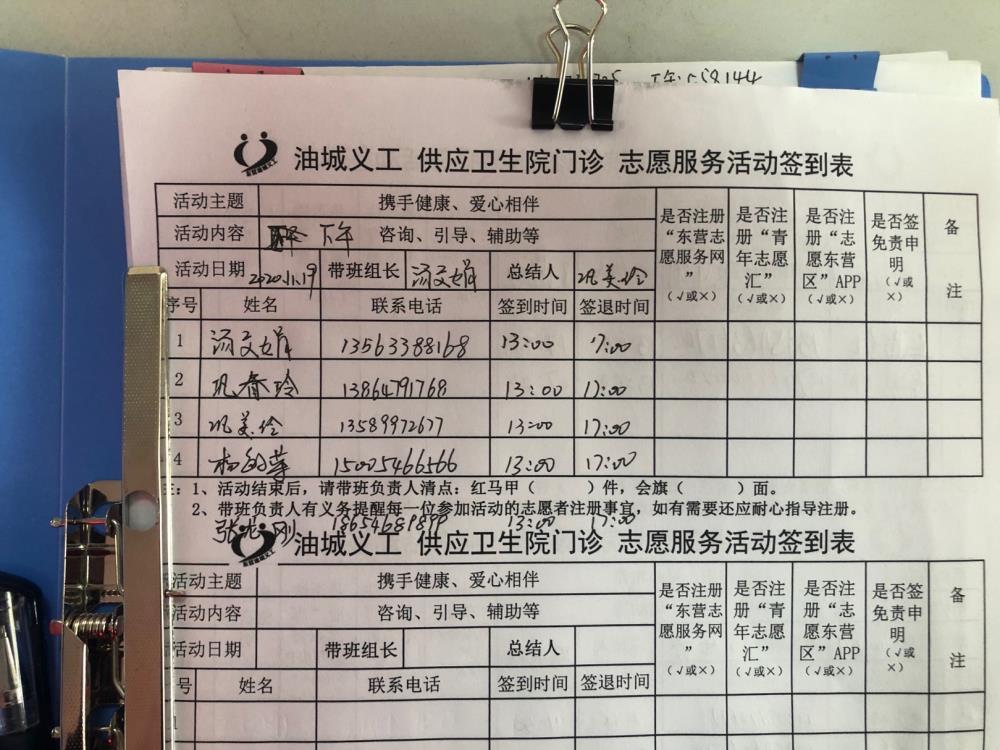 58144
油城义工 供应卫生院门诊 志愿服务活动签到表
活动主题 携手健康、爱心相伴 是否注册“东营志愿服务网”(√或×) 是否注册“青年志愿汇”(√或×) 是否注册“志愿东营区”APP(√或×) 是否签免责申明(√或×) 备注
活动内容 下午 咨询、引导、辅助等
活动日期 2020.11.19 带班组长 汤文娟 总结人 巩美玲
序号 姓名 联系电话 签到时间 签退时间
1 汤文娟 13563388168 13:00 17:00
2 巩春玲 13864791768 13:00 17:00
3 巩美玲 13589972677 13:00 17:00
4 15005466566 13:00 17:00
注：1、活动结束后，请带班负责人清点：红马甲（ ）件，会旗（ ）面。
2、带班负责人有义务提醒每一位参加活动的志愿者注册事宜，如有需要还应耐心指导注册。
张 刚 13:00 17:00
油城义工 供应卫生院门诊 志愿服务活动签到表
活动主题 携手健康、爱心相伴 是否注册“东营志愿服务网”(√或×) 是否注册“青年志愿汇”(√或×) 是否注册“志愿东营区”APP(√或×) 是否签免责申明(√或×) 备注
活动内容 咨询、引导、辅助等
活动日期 带班组长 总结人
号 姓名 联系电话 签到时间 签退时间
1